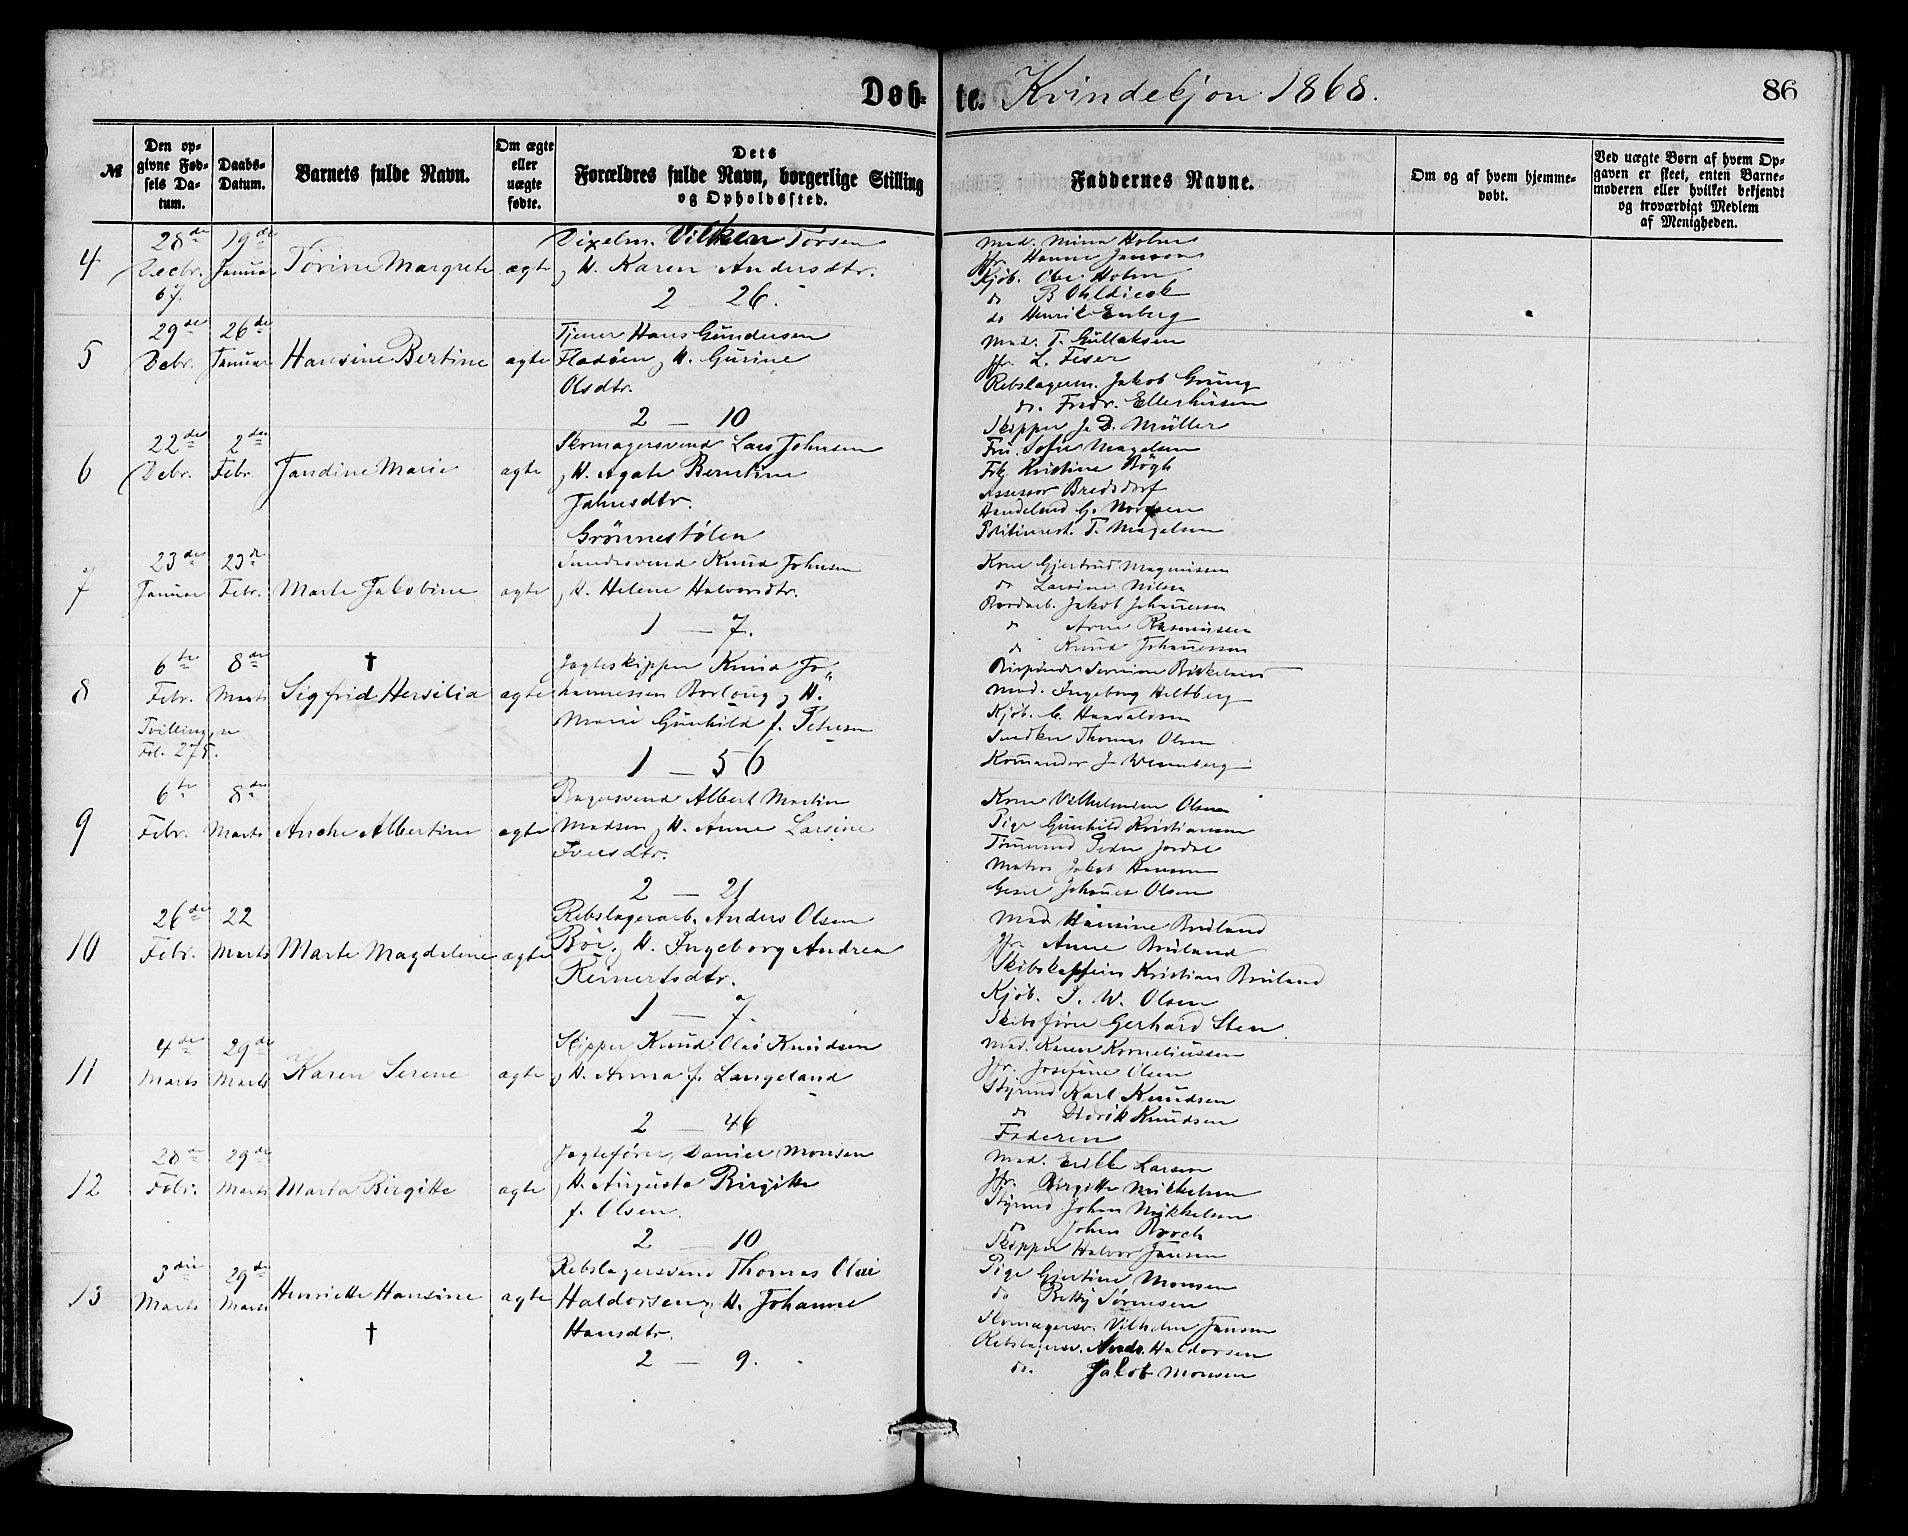 Døb- te. Kvindekjøn 1868. 86
№
Den op-
givne Fød-
sels Da-
tum.
Daabs-
Datum.
Barnets fulde Navn.
Om ægte
eller
uægte
fødte.
Dets
Forældres fulde Navn, borgerlige Stilling
og Opholdssted.
Faddernes Navne.
Om og af hvem hjemme-
døbt.
Ved uægte Børn af hvem Op-
gaven er skeet, enten Barne-
moderen eller hvilket bekjendt
og troværdigt Medlem
af Menigheden.
4
28de
Decbr.
67.
19de
Januar
Torine Margrete
ægte
Vilken Torsen
H. Karen Andersdtr.
2 — 26.
Mad. Mina Holm
Jfr. Hanne Janson
Kjøb. Ole Holm
do B Ohldieck
do Henrik Enberg
5
29de
Debr.
26de
Januar
Hansine Bertine
ægte
Tjener Hans Gundersen
Fladøen, H. Gurine
Olsdtr.
2 — 10
Mad. T. Gullaksen
Jfr. L. Feser
Rebslagerm. Jakob Grung
do. Fredr. Ellerhusen
Skipper J. D. Müller
6
22de
Debr.
2de
Febr.
Jandine Marie
ægte
Skomagersvend Lars Johnsen
H. Agate Berntine
Jahnsdtr.
Grönnestølen
Fru. Sofie Magelsen
Frk Kristine Bögh
Assessor Bredsdorf
Handelsmd G.
Politimest. T. Magelsen
7
23de
Januar
23d
Febr.
Marte Jakobine
ægte
Knud Johnsen
H. Helene Halvorsdtr.
1 — 7.
Kone Gjertrud Magnussen
do Larsine Nilsen
Jakob Johannesen
do Arne Rasmussen
do Knud Johannessen
8
6te
Febr.
Tvilling, se
Fol. 275.
8de
Marts
†
Sigfrid Hersilia
ægte
Jagteskipper Knud Jo-
hannessen Borlaug, H.
Marie Gunhild f. Petersen
1 — 56
Mad. Ingeborg Heltberg
Kjøb. C. Haavaldsen
Snedker Thomas Olsen
9
6te
Febr.
8de
Marts
Anche Albertine
ægte
Bagersvend Albert Martin
Madsen, H. Anne Larsine
Iversdtr.
2 — 21
Kone Vilhelmine Olsen
Pige Gunhild Kristiansen
Tömmermd Peder Jordal
Matros Jakob Hansen
Johannes Olsen
10
26de
Febr.
22
Marts
Marte Magdeline
ægte
Rebslagerarb. Anders Olsen
Böe, H. Ingeborg Andrea
Reinertsdtr.
1 — 7
Mad Hansine Bruland
Jfr. Anne Bruland
Skibskaptein Kristian Bruland
Kjøb. I. W. Olsen
Skibsfører Gerhard Steen
11
4de
Marts
29de
Marts
Karen Serene
ægte
Skipper Knud Olai Knudsen
H. Anna f. Langeland
2 — 46
Mad. Karen Korneliussen
Jfr. Josefine Olsen
Styrmd Karl Knudsen
do Didrik Knudsen
Faderen
12
28de
Febr.
29de
Marts
Marta Birgitte
ægte
Jagtefører Daniel Monsen
H. Augusta Birgitte
f. Olsen.
2 — 10
Mad. Larsen
Jfr. Birgitte Mikkelsen
Styrmd Johan Mikkelsen
do Johan Broch
Skipper Halvor Jansen
13
3die
Marts
29de
Marts
Henriette Hansine
†
ægte
Rebslagersvend Thomas Olai
Haldorsen, H. Johanne
Hansdtr.
2 — 9.
Pige Gjertine Monsen
do Sörensen
Skomagersv. Vilhelm Jansen
Rebslagersv. Ands. Haldorsen
do. Jakob Monsen